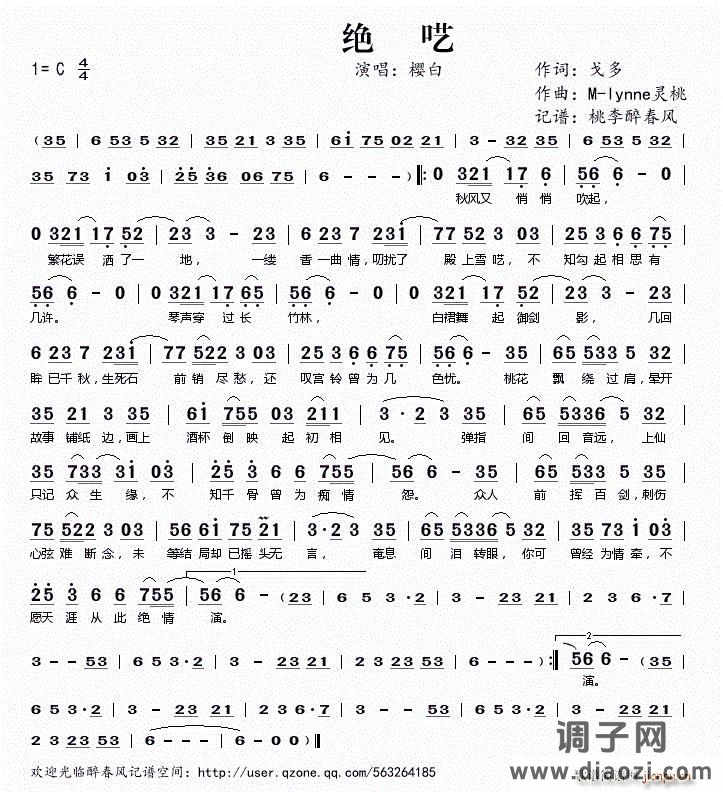 绝 呓
1=C 4/4 演唱：樱白 作词：戈多
作曲：M-lynne灵桃
记谱：桃李醉春风
(35 | 6 53 5 32 | 35 5 - 35 | 6i 75 02 21 | 3 - 32 35 |
35 73 i 03 | 25 36 06 75 | 6 - - - ) ‖: 0 321 17 6 | 56 6 - 0 |
秋风又 悄悄 吹起，
0 321 17 52 | 23 3 - 23 | 6 23 7 231 | 77 52 3 03 | 35 6 6 75 |
繁花误 洒了一 地， 一缕 香一曲情，叨扰了 殿上雪呓，不 知勾起相思有
56 6 - 0 | 0 321 17 65 | 56 6 - 0 | 0 321 17 52 | 23 3 - 23 |
几许。 琴声穿 过长 竹林， 白裙舞 起御剑 影， 几回
6 23 7 231 | 77 522 3 03 | 35 6 6 75 | 56 6 - 35 | 65 533 5 32 |
眸已千秋，生死石 前销尽愁，还 叹宫铃曾为几 色忧。 桃花 飘绕过肩，晕开
35 21 3 35 | 6i 755 03 211 | 3 · 2 3 35 | 65 5336 5 32 |
故事铺纸边，画上 酒杯倒映起初相 见。 弹指 间回音远，上仙
35 733 3i 03 | 25 3 6 6 755 | 56 6 - 35 | 65 5336 5 32 |
只记众生缘，不 知千骨曾为痴情 怨。 众人 前挥百剑，刺伤
75 522 3 03 | 56 6i 75 21 | 3 · 2 3 35 | 65 5336 5 32 | 35 733 i 03 |
心弦难断念，未 等结局却已摇头无 言，奄息 间泪转眼，你可 曾经为情牵，不
25 3 6 6 755 | 56 6 - (23 | 6 5 3 · 2 | 3 - 23 21 | 2 3 6 · 7 |
愿天涯从此绝情 演。
1
3 - - 53 | 6 5 3 · 2 | 3 - 23 21 | 2 3 23 53 | 6 - - - ) :‖ 56 6 - (35 |
2
演。
6 5 3 · 2 | 3 - 23 21 | 2 3 6 · 7 | 3 - - 53 | 6 5 3 · 2 | 3 - 23 21 |
2 3 23 53 | 6 - - - | 6 - - - ) ‖
欢迎光临醉春风记谱空间：http://user.qzone.qq.com/563264185
调子网
www.diaozi.com